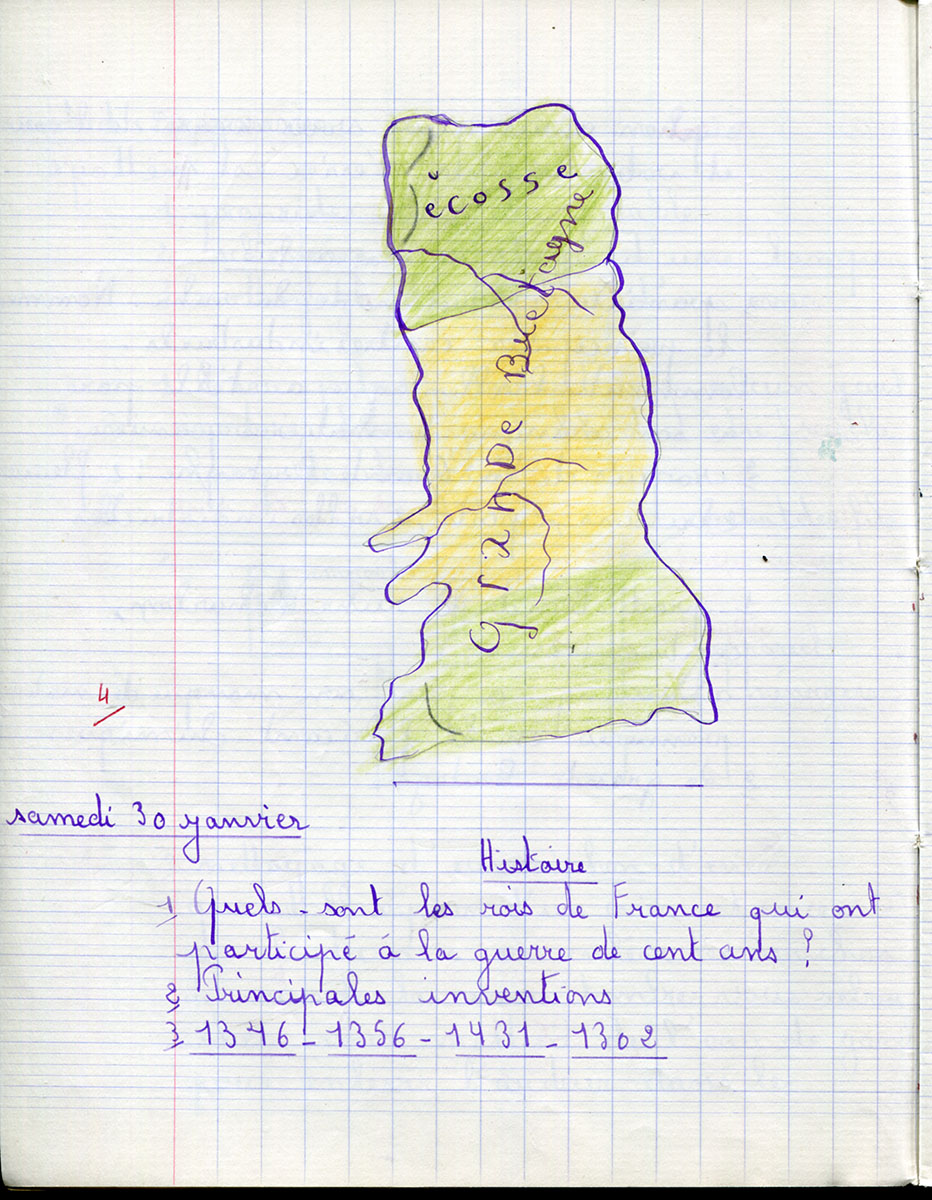 écosse
grande Bretagne
4
samedi 30 janvier
Histoire
1 Quels - sont les rois de France qui ont
participé à la guerre de cent ans ?
2 Principales inventions
3 1346 - 1356 - 1431 - 1302